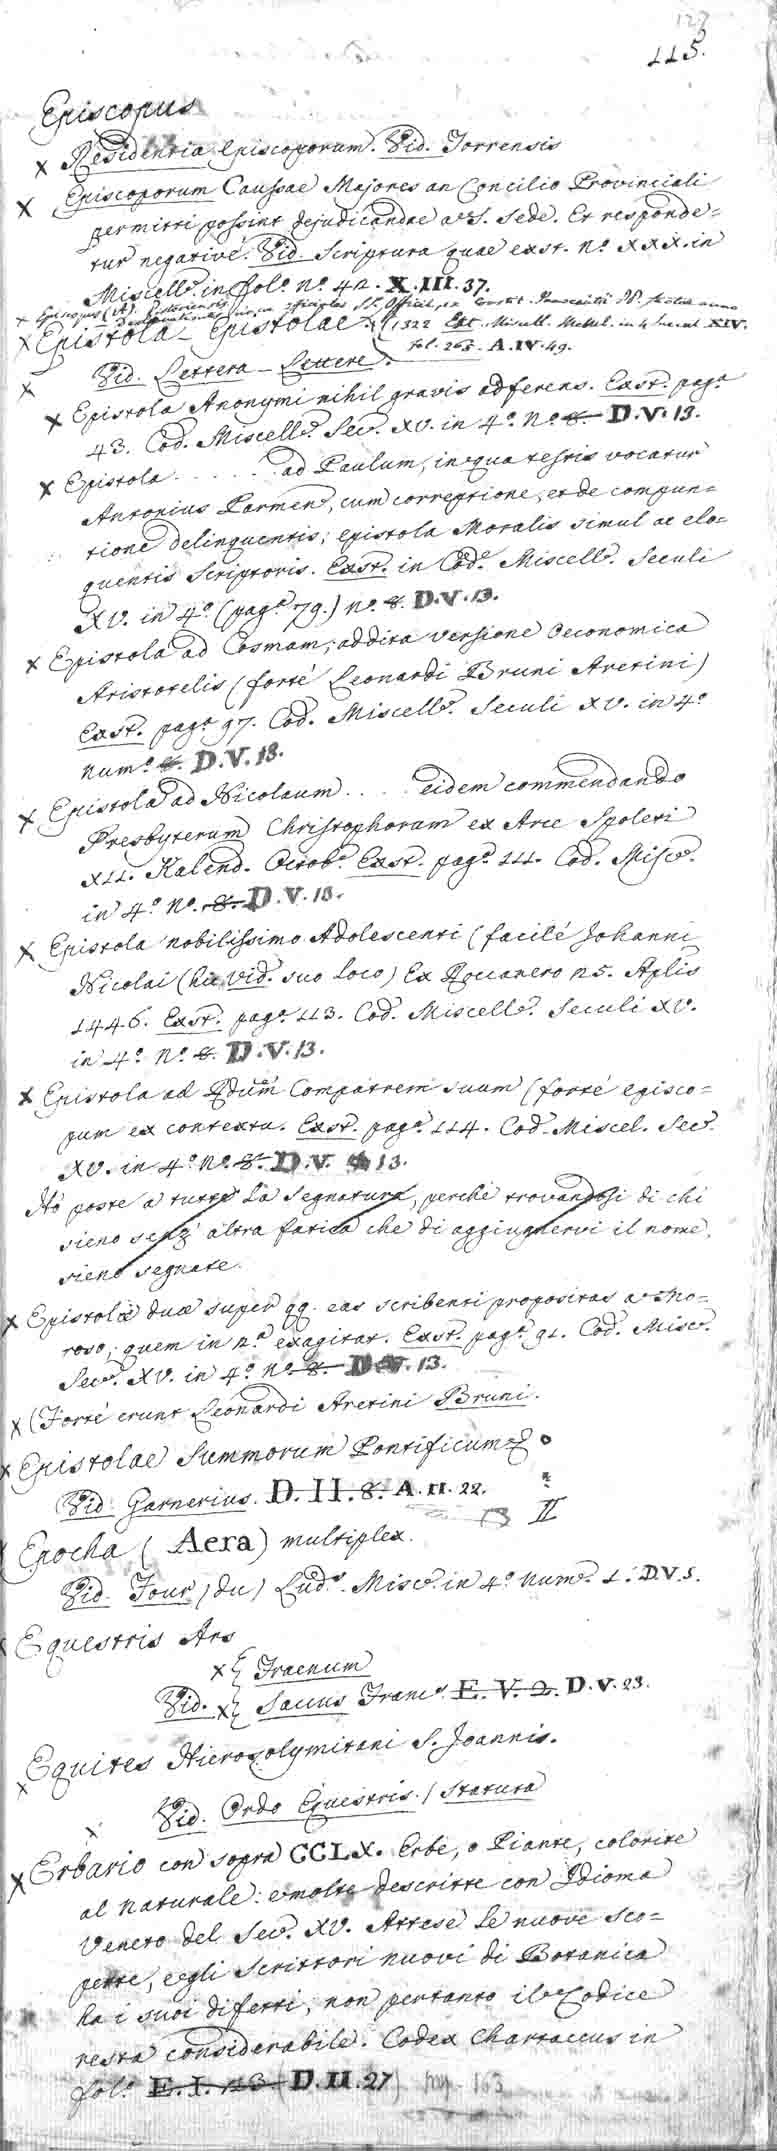 127
115.
Episcopus
x Residentia Episcoporum. Vid. Torrensis
x Episcoporum Caussae Majores an Concilio Provinciali
permitti possint dejudicandae a S. Sede. Et responde=
tur negativé. Vid. Scriptura quae exst. nº. XXX. in
Miscell. in folº. nº. 42. X.III.37.
x Episcopus (A). Pistoriensis
1322 Ext. Miscell. in 4 XIV.
fol. 263. A.IV.49.
x Epistola - Epistolae
x Vid. Lettera - Lettere.
x Epistola Anonymi nihil gravis adferens. Exst. pagª.
43. Cod. Miscell. Sec. XV. in 4º. Nº. 8. D.V.13.
x Epistola . . . . . . ad Paulum, in qua testis vocatur
Antonius Parmen, cum correptione, et de compun=
tione delinquentis; epistola Moralis simul ac elo=
quentis Scriptoris. Exst. in Cod. Miscell. Seculi
XV. in 4º (pagª. 79.) nº. 8. D.V.13.
x Epistola ad Cosmam; addita versione Oeconomica
Aristotelis (forté Leonardi Bruni Aretini)
Exst. pagª. 97. Cod. Miscell. Seculi XV. in 4º
numº. 8. D.V.13.
x Epistola ad Nicolaum . . . . eidem commendando
Presbyterum Christophorum ex Arce Spoleti
XII. Kalend. Octob. Exst. pagª. 111. Cod. Misc.
in 4º. Nº. 8. D.V.13.
x Epistola nobilissimo Adolescenti (facilé Johanni
Nicolai (hic vid. suo loco) Ex Roccanero 25. Aplis
1446. Exst. pagª. 113. Cod. Miscell. Seculi XV.
in 4º. Nº. 8. D.V.13.
x Epistola ad Qdum Compatrem suum (forté episco=
pum ex contextu. Exst. pagª. 114. Cod. Miscel. Sec.
XV. in 4º. Nº. 8. D.V. 13.
Hò poste a tutte la segnatura, perché trovandosi di chi
sieno senz' altra fatica che di aggiugnervi il nome,
sieno segnate.
x Epistolæ duæ super qq. eas scribenti propositas a Mo=
roso; quem in 2.ª exagitat. Exst. pagª. 91. Cod. Misc.
Sec. XV. in 4º. Nº. 8. D.V.13.
x (Forté erunt Leonardi Aretini Bruni.
x Epistolae Summorum Pontificum
Vid. Garnerius. D.II.8. A.II.22.
II
Epocha (Aera) multiplex.
Vid. Four (du) Lud. Misc. in 4º. Numº. 1. D.V.5.
Equestris Ars
x { Fraenum
Vid. x { Saunus Franc. E.V.2. D.V.23.
x Equites Hierosolymitani S. Joannis.
Vid. Ordo Equestris. / Statuta
x Erbario con sopra CCLX. Erbe, o Piante, colorite
al naturale: e molte descritte con Idioma
Veneto del Sec. XV. Attese le nuove sco=
perte, e gli Scrittori nuovi di Botanica
ha i suoi difetti, non pertanto il Codice
resta considerabile. Codex Chartaceus in
folº. E.I. 23 D.II.27 163